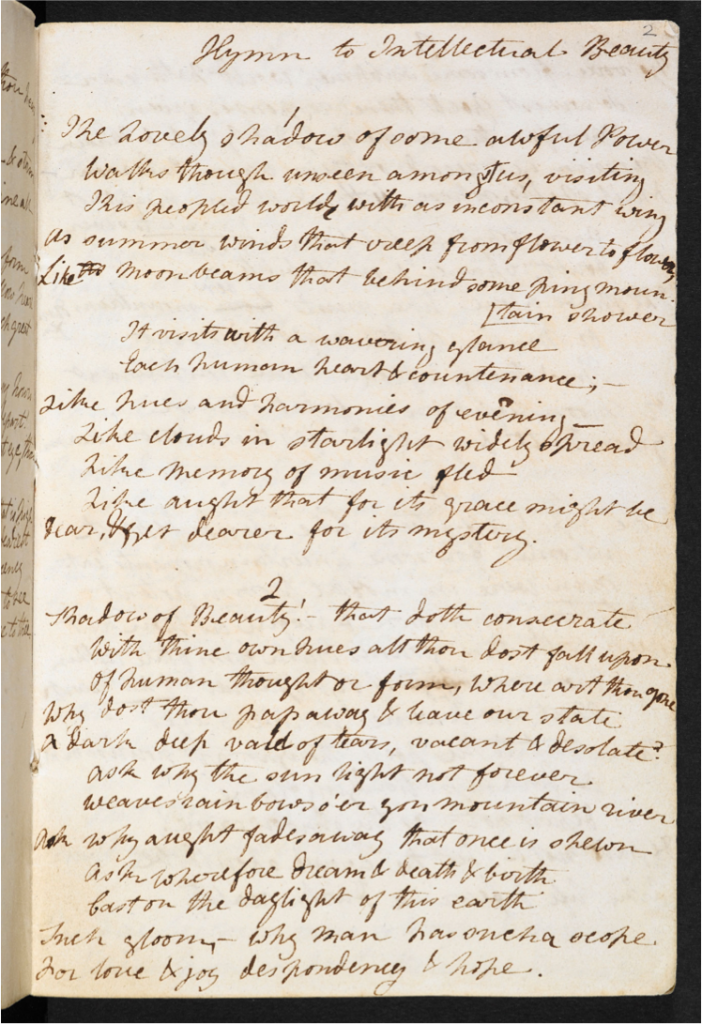 2
Hymn to Intellectual Beauty
1
The Lovely shadow of some awful Power
Walks though unseen amongst us, visiting
This peopled world, with as inconstant wing
As summer winds that creep from flower to flower,
Like moonbeams that behind some piny moun-
[tain shower
It visits with a wavering glance
Each human heart & countenance;—
Like hues and harmonies of evening—
Like clouds in starlight widely spread
Like memory of music fled
Like aught that for its grace might be
Dear, & yet dearer for its mystery.
2
Shadow of Beauty!— that doth consecrate
With thine own hues all thou dost fall upon
Of human thought or form, where art thou gone
Why dost thou pass away & leave our state
A dark deep vale of tears, vacant & desolate?
Ask why the sun light not forever
Weaves rainbows o'er yon mountain river
Ask why aught fades away that once is shewn
Ask wherefore dream & death & birth
Cast on the daylight of this earth
Such gloom,— why man has such a scope
For love & joy despondency & hope.